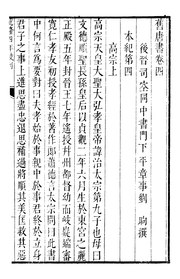 舊唐書卷四
後晉司空同中書門下平章事劉昫撰
本紀第四
高宗上
高宗天皇大聖大弘孝皇帝諱治太宗第九子也母曰
文德順聖長孫皇后以貞觀二年六月生於東宮之麗
正殿五年封晉王七年遙授并州都督幼而岐嶷端審
寬仁孝友初授孝經於著作郎蕭德言太宗問曰此書
中何言為要對曰夫孝始於事親中於事君終於立身
君子之事上進思盡忠退思補過將順其美匡救其惡